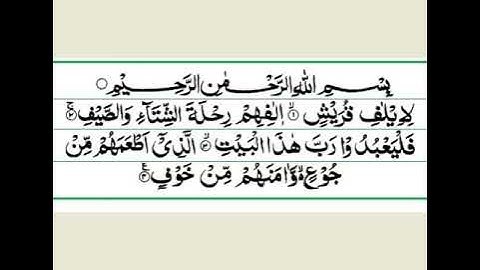 بِسْمِ اللهِ الرَّحْمٰنِ الرَّحِيْمِ ○
لِاِيْلٰفِ قُرَيْشٍ ۙ﴿۱﴾ اٖلٰفِهِمْ رِحْلَةَ الشِّتَآءِ وَالصَّيْفِ ۚ﴿۲﴾
فَلْيَعْبُدُوْا رَبَّ هٰذَا الْبَيْتِ ۙ﴿۳﴾ الَّذِىْٓ اَطْعَمَهُمْ مِّنْ
جُوْعٍ ۙ وَّاٰمَنَهُمْ مِّنْ خَوْفٍ ۠﴿۴﴾